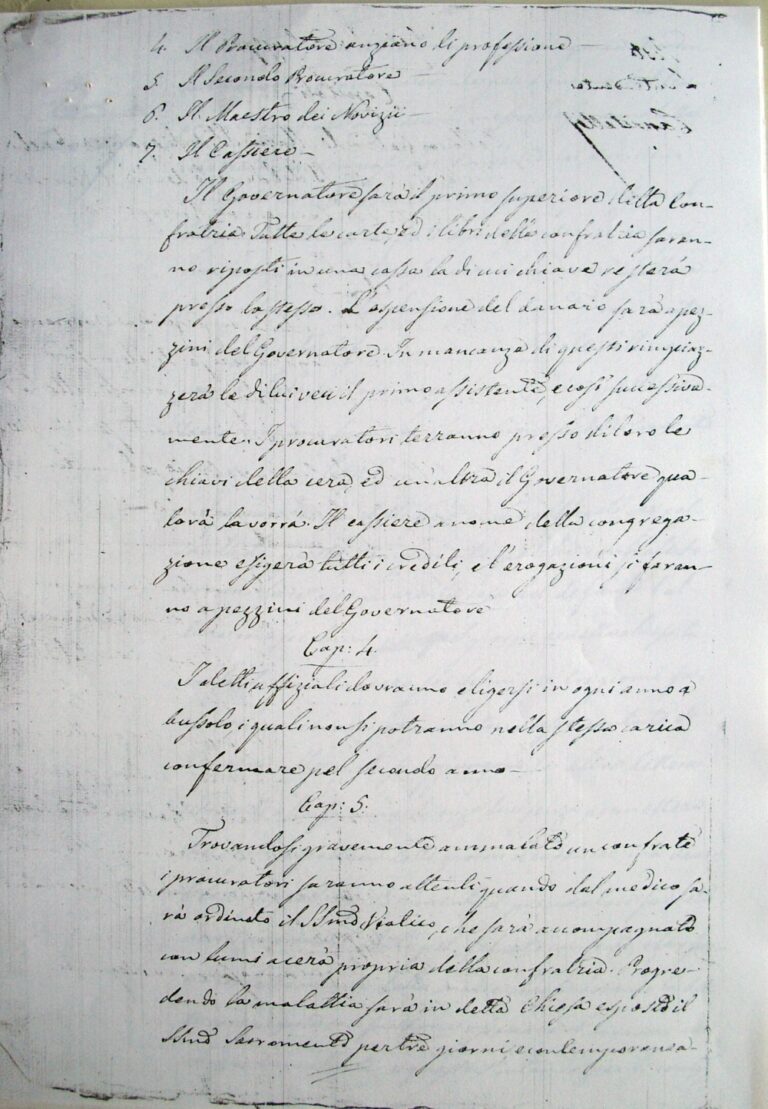 4. Il Procuratore anziano di professione —
5. Il Secondo Procuratore
6. Il Maestro dei Novizii —
7. Il Cassiere —
Il Governatore sarà il primo superiore della Con-
fratria. Tutte le carte, ed i libri della confratria saran-
no riposti in una cassa la di cui chiave resterà
presso lo stesso. L'espensione del danaro sarà a pez-
zini del Governatore. In mancanza di questi rimpiaz-
zerà le di lui veci il primo assistente, e così successiva-
mente. I procuratori terranno presso di loro le
chiavi della cera, ed un'altra il Governatore qua-
lora la vorrà. Il cassiere a nome della congrega-
zione esigerà tutti i crediti, e l'erogazioni si faran-
no a pezzini del Governatore
Cap: 4.
I detti uffiziali dovranno eligersi in ogni anno a
bussolo i quali non si potranno nella stessa carica
confermare pel secondo anno —
Cap: 5.
Trovandosi gravemente ammalato un confrate
i procuratori saranno attenti quando dal medico sa-
rà ordinato il SSmo Viatico, che sarà accompagnato
con lumi a cera propria della confratria. Progre-
dendo la malattia sarà in detta Chiesa esposto il
SSmo Sacramento per tre giorni, e contemporanea-